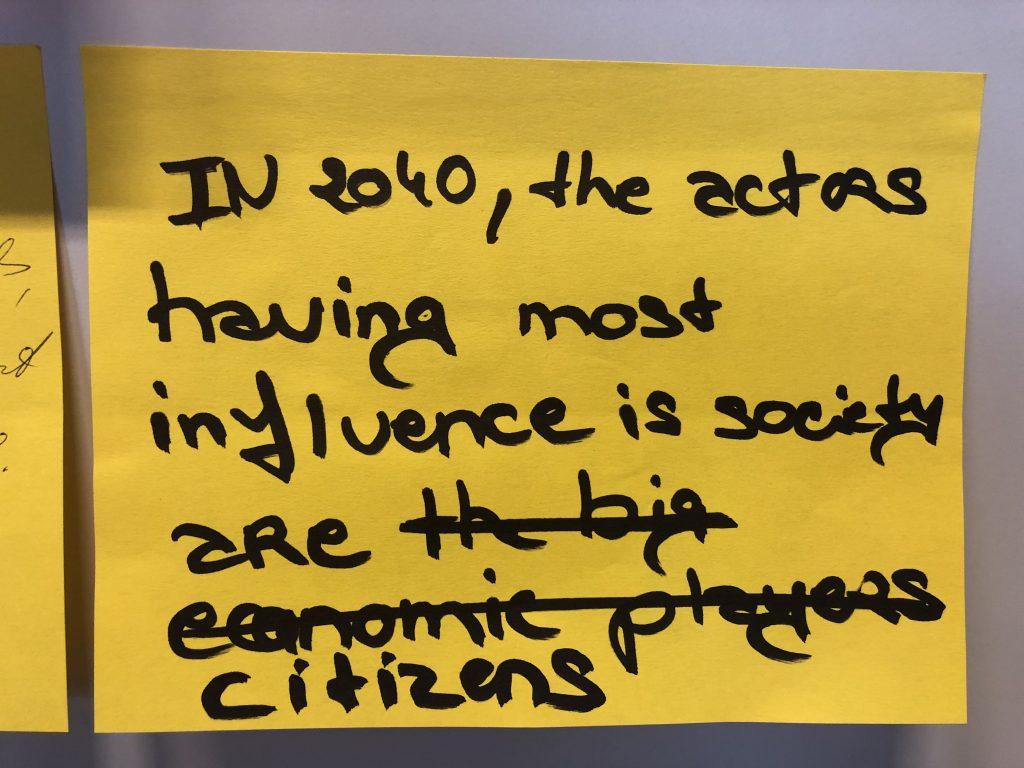 IN 2040, the actors
having most
influence is society
are ~~the big~~
~~economic players~~
citizens